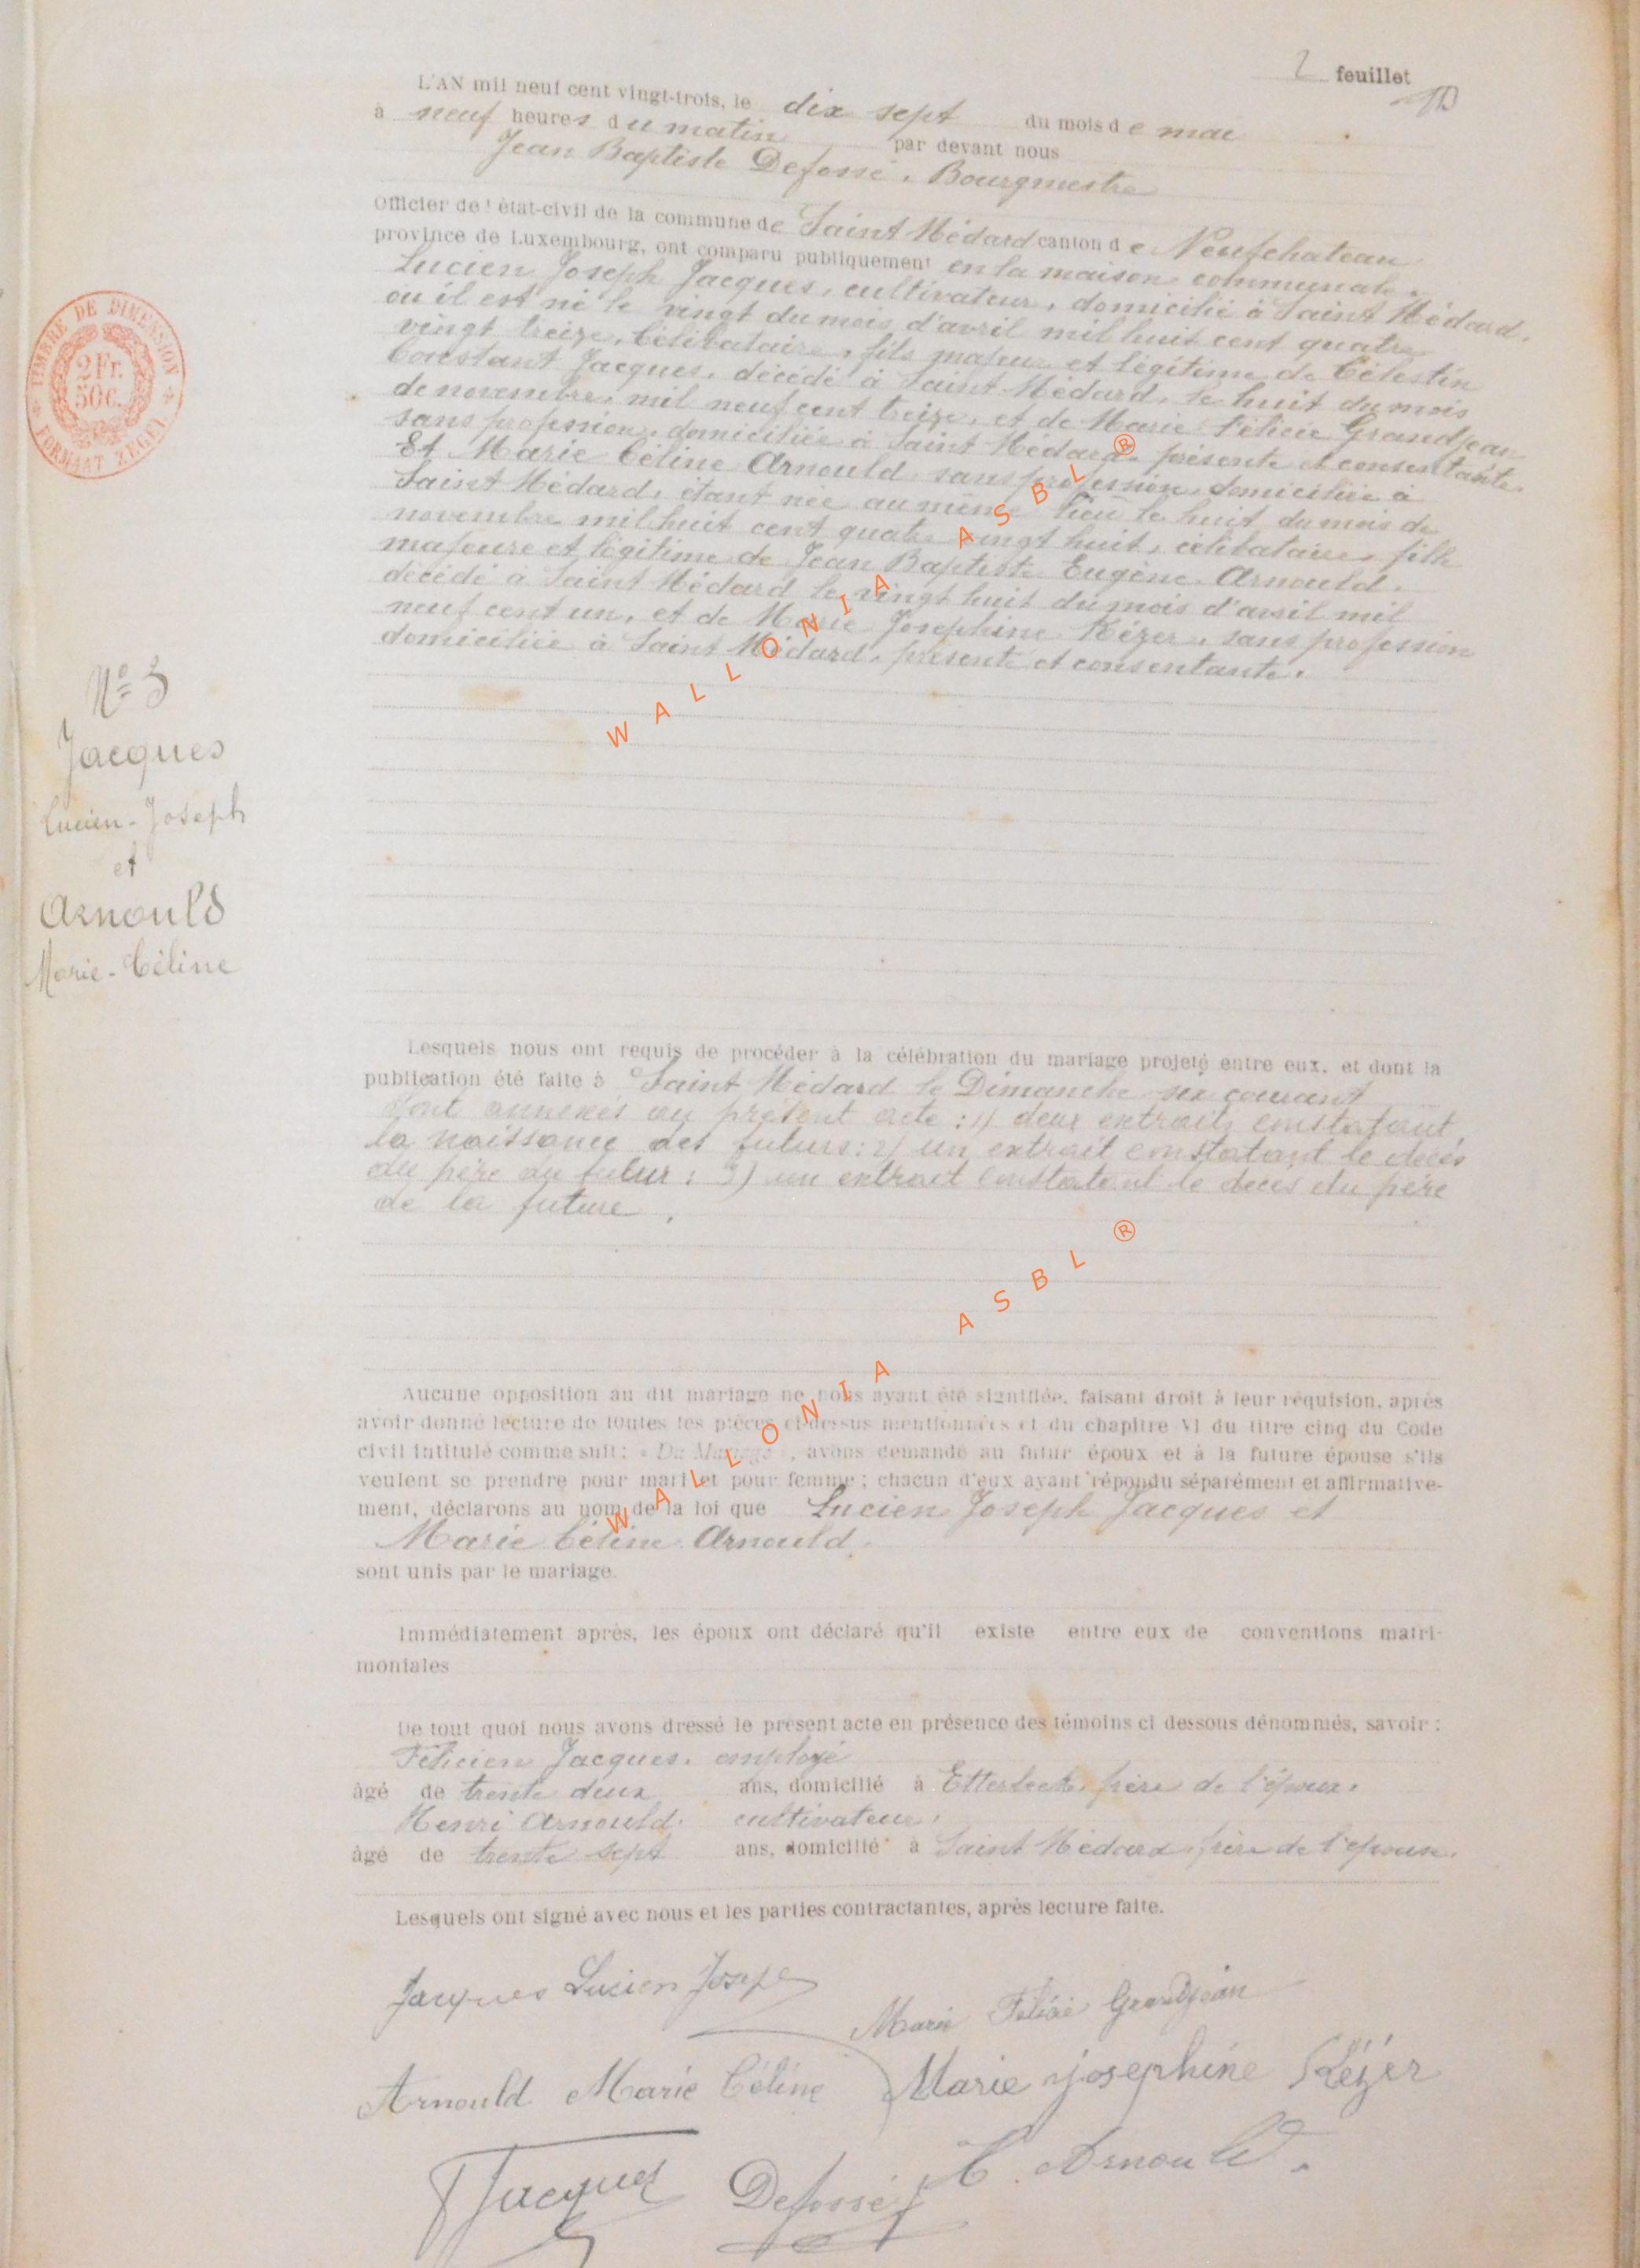 2 feuillet
L'AN mil neuf cent vingt-trois, le dix sept du mois de mai
à neuf heures du matin par devant nous
Jean Baptiste Defossé, Bourgmestre
officier de l'état-civil de la commune de Saint Médard canton de Neufchateau
province de Luxembourg, ont comparu publiquement en la maison communale,
Lucien Joseph Jacques, cultivateur, domicilié à Saint Médard,
où il est né le vingt du mois d'avril mil huit cent quatre
vingt treize, célibataire, fils majeur et légitime de Célestin
Constant Jacques, décédé à Saint Médard, le huit du mois
de novembre, mil neuf cent treize, et de Marie Félicie Grandjean
sans profession, domiciliée à Saint Médard, présente et consentante.
Et Marie Céline Arnould sans profession, domiciliée à
Saint Médard, étant née au même lieu le huit du mois de
novembre mil huit cent quatre vingt huit, célibataire, fille
majeure et légitime de Jean Baptiste Eugène Arnould,
décédé à Saint Médard le vingt huit du mois d'avril mil
neuf cent un, et de Marie Josephine Kézer, sans profession
domiciliée à Saint Médard, présente et consentante.
TIMBRE DE DIMENSION
2 Fr.
50c.
FORMAAT ZEGEL
No 3
Jacques
Lucien-Joseph
et
Arnould
Marie-Céline
Lesquels nous ont requis de procéder à la célébration du mariage projeté entre eux, et dont la
publication été faite à Saint Médard le Dimanche six courant
Sont annexés au présent acte : 1) deux extraits constatant
la naissance des futurs : 2) un extrait constatant le décès
du père du futur ; 3) un extrait constatant le décès du père
de la future.
Aucune opposition au dit mariage ne nous ayant été signifiée, faisant droit à leur réquision, après
avoir donné lecture de toutes les pièces ci-dessus mentionnées et du chapitre VI du titre cinq du Code
civil intitulé comme suit : « Du Mariage », avons demandé au futur époux et à la future épouse s'ils
veulent se prendre pour mari et pour femme ; chacun d'eux ayant répondu séparément et affirmative-
ment, déclarons au nom de la loi que Lucien Joseph Jacques et
Marie Céline Arnould.
sont unis par le mariage.
Immédiatement après, les époux ont déclaré qu'il existe entre eux de conventions matri-
moniales
De tout quoi nous avons dressé le présent acte en présence des témoins ci dessous dénommés, savoir :
Félicien Jacques, employé
âgé de trente deux ans, domicilié à Etterbeek, frère de l'époux.
Henri Arnould, cultivateur,
âgé de trente sept ans, domicilié à Saint Médard, frère de l'épouse.
Lesquels ont signé avec nous et les parties contractantes, après lecture faite.
Jacques Lucien Joseph
Marie Félicie Grandjean
Arnould Marie Céline
Marie josephine Kézer
F Jacques
Defossé
Arnould.
WALLONIA ASBL ®
WALLONIA ASBL ®